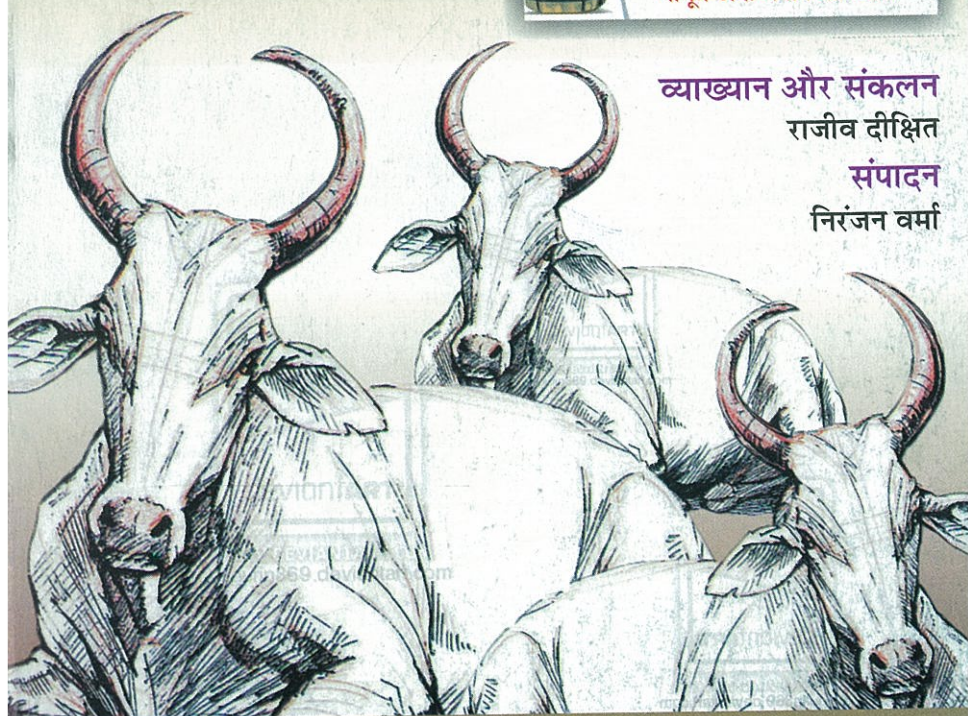 व्याख्यान और संकलन
राजीव दीक्षित
संपादन
निरंजन वर्मा